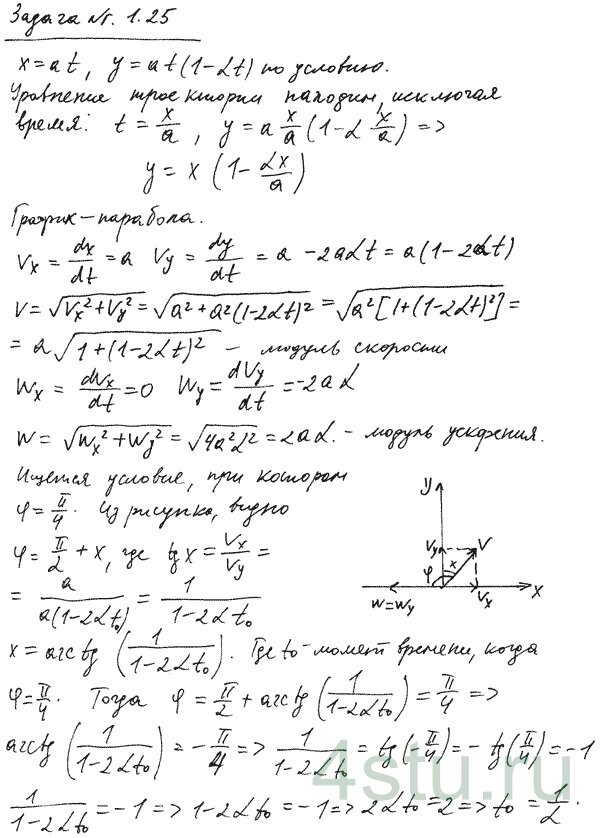 Задача №. 1.25
x = at, y = at(1-αt) по условию.
Уравнение траектории находим, исключая
время: t = x/a, y = a x/a (1-α x/a) =>
y = x (1 - αx/a)
График - парабола.
Vx = dx/dt = a Vy = dy/dt = a - 2aαt = a(1-2αt)
V = √(Vx²+Vy²) = √(a²+a²(1-2αt)²) = √(a²[1+(1-2αt)²]) =
= a√(1+(1-2αt)²) - модуль скорости
Wx = dVx/dt = 0 Wy = dVy/dt = -2aα
W = √(Wx²+Wy²) = √(4a²α²) = 2aα. - модуль ускорения.
Ищется условие, при котором
φ = π/4. Из рисунка, видно
φ = π/2 + x, где tg x = Vx/Vy =
= a/(a(1-2αt₀)) = 1/(1-2αt₀)
y
Vy
V
φ
x
W=Wy
Vx
x
x = arctg (1/(1-2αt₀)). Где t₀ - момент времени, когда
φ = π/4. Тогда φ = π/2 + arctg (1/(1-2αt₀)) = π/4 =>
arctg (1/(1-2αt₀)) = -π/4 => 1/(1-2αt₀) = tg(-π/4) = -tg(π/4) = -1
1/(1-2αt₀) = -1 => 1-2αt₀ = -1 => 2αt₀ = 2 => t₀ = 1/α.
4stu.ru